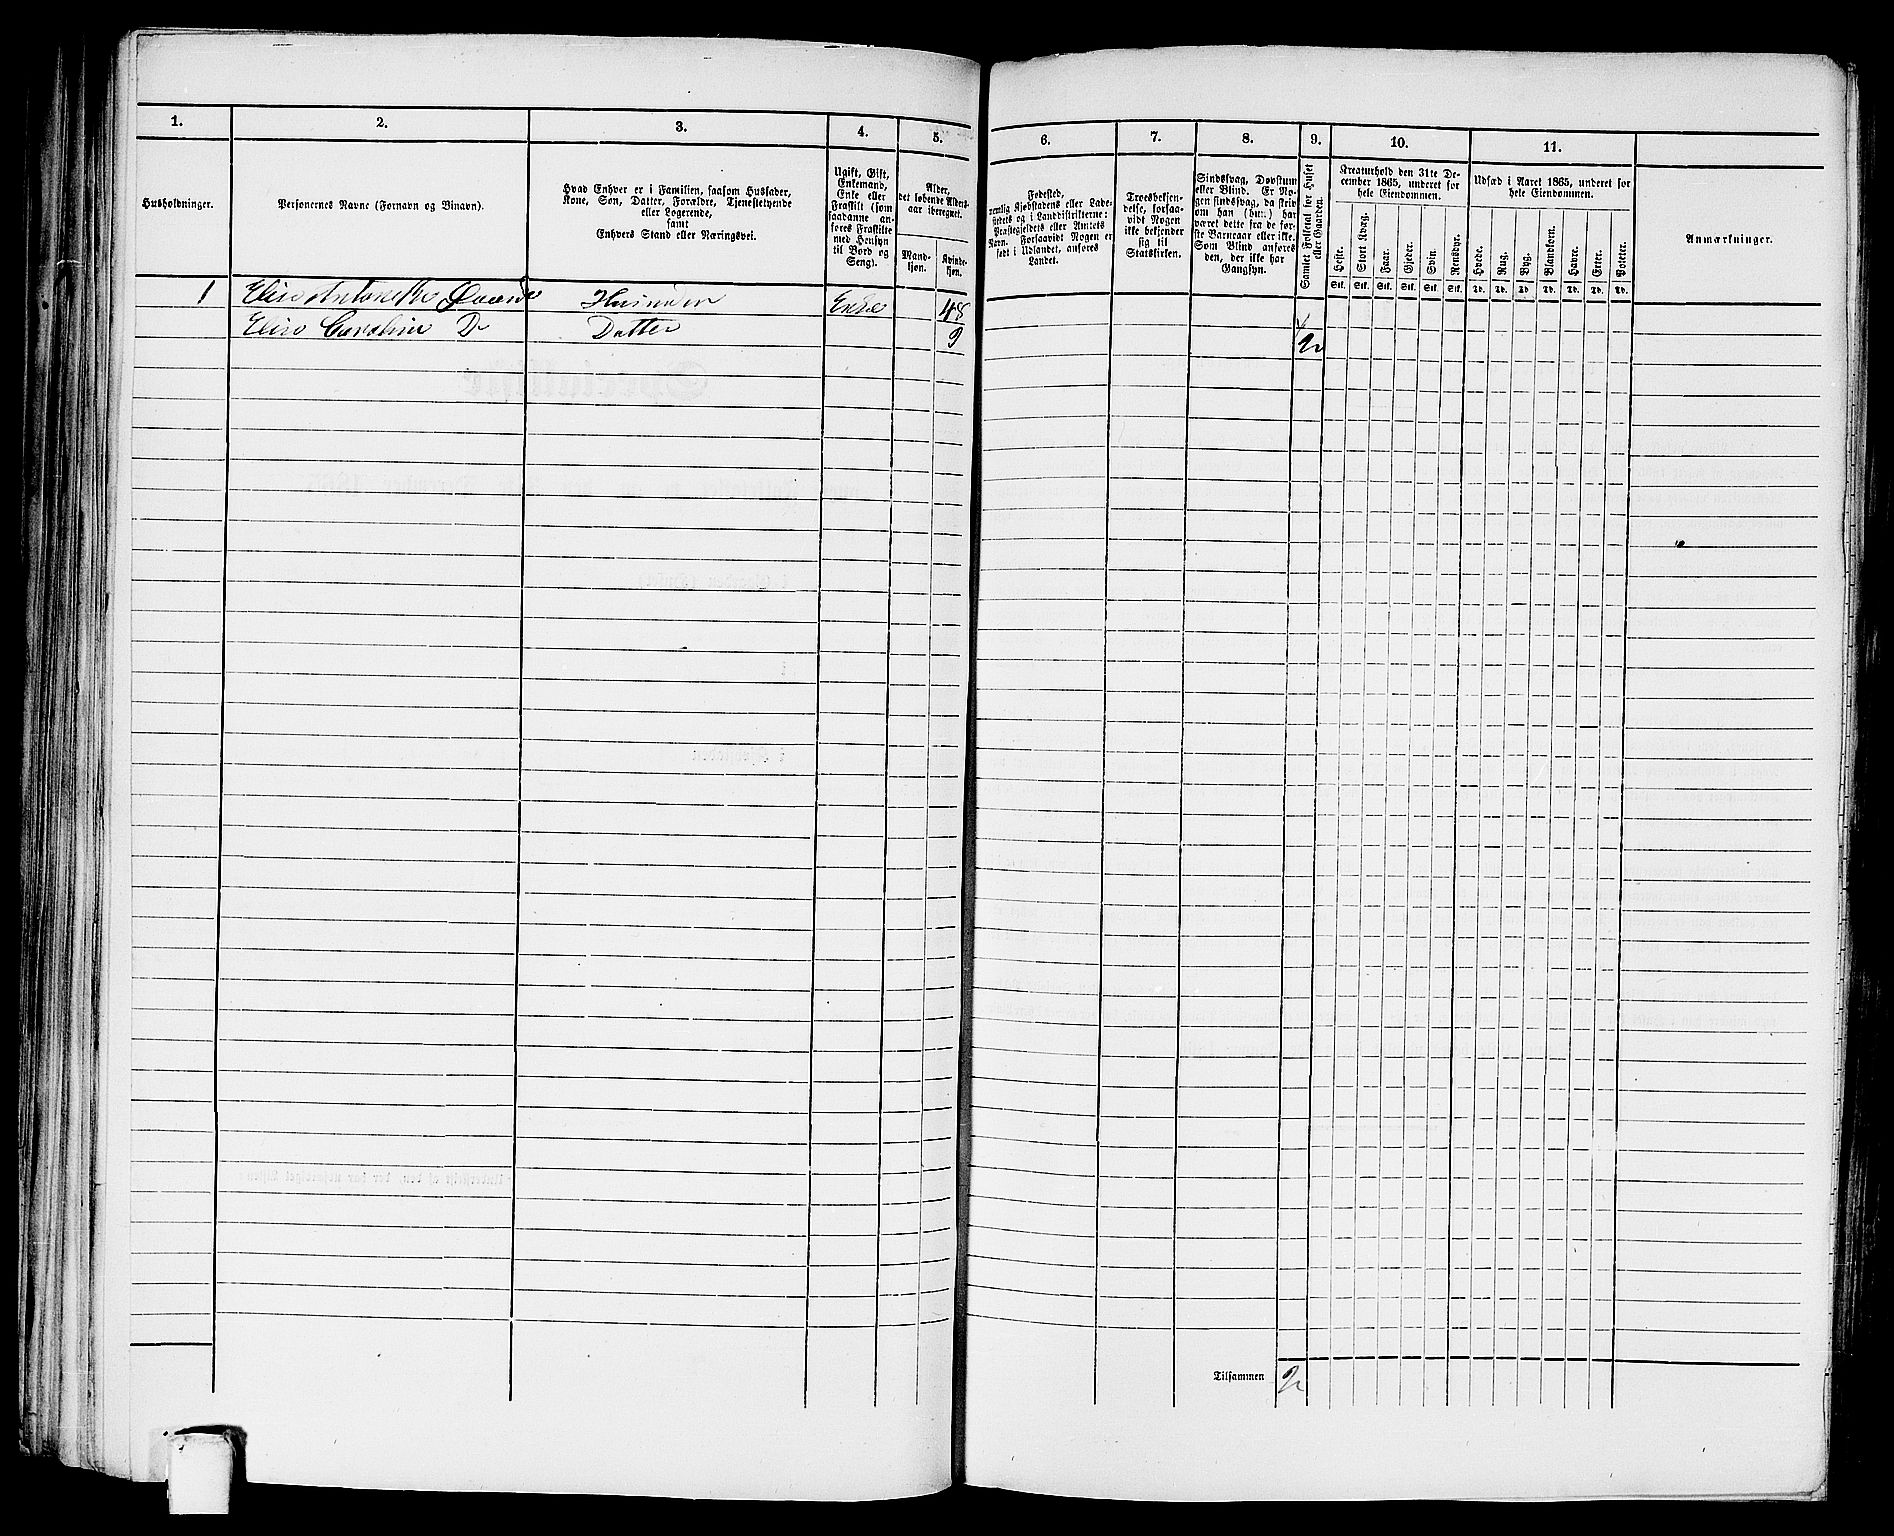 1.
2.
3.
4.
5.
6.
7.
8.
9.
10.
11.
Husholdninger.
Personernes Navne (Fornavn og Binavn).
Hvad Enhver er i Familien, saasom Husfader,
Kone, Søn, Datter, Forældre, Tjenestetyende
eller Logerende,
samt
Enhvers Stand eller Næringsvei.
Ugift, Gift,
Enkemand,
Enke eller
Fraskilt (som
saadanne an-
føres Fraskilte
med Hensyn
til Bord og
Seng).
Alder,
det løbende Alders-
aar iberegnet.
Mand-
kjøn.
Kvinde-
kjøn.
Fødested,
nemlig Kjøbstadens eller Lade-
stedets og i Landdistrikterne:
Præstegjeldets eller Amtets
Navn. Forsaavidt Nogen er
født i Udlandet, anføres
Landet.
Troesbekjen-
delse, forsaa-
vidt Nogen
ikke bekjender
sig til
Statskirken.
Sindssvag, Døvstum
eller Blind. Er No-
gen sindssvag, da skriv
om han (hun) har
været dette fra de før-
ste Barneaar eller ikke.
Som Blind anføres
den, der ikke har
Gangsyn.
Samlet Folketal for Huset
eller Gaarden.
Kreaturhold den 31te De-
cember 1865, underet for
hele Eiendommen.
Heste.
Stort Kvæg.
Faar.
Gjeder.
Sviin.
Rensdyr.
Stk. Stk. Stk. Stk. Stk. Stk.
Udsæd i Aaret 1865, underet for
hele Eiendommen.
Hvede.
Rug.
Byg.
Blandkorn.
Havre.
Erter.
Poteter.
Td. Td. Td. Td. Td. Td. Td.
Anmærkninger.
1 Elise Antonette Enke 48
Elise Caroline D Datter 9 2
Tilsammen 2